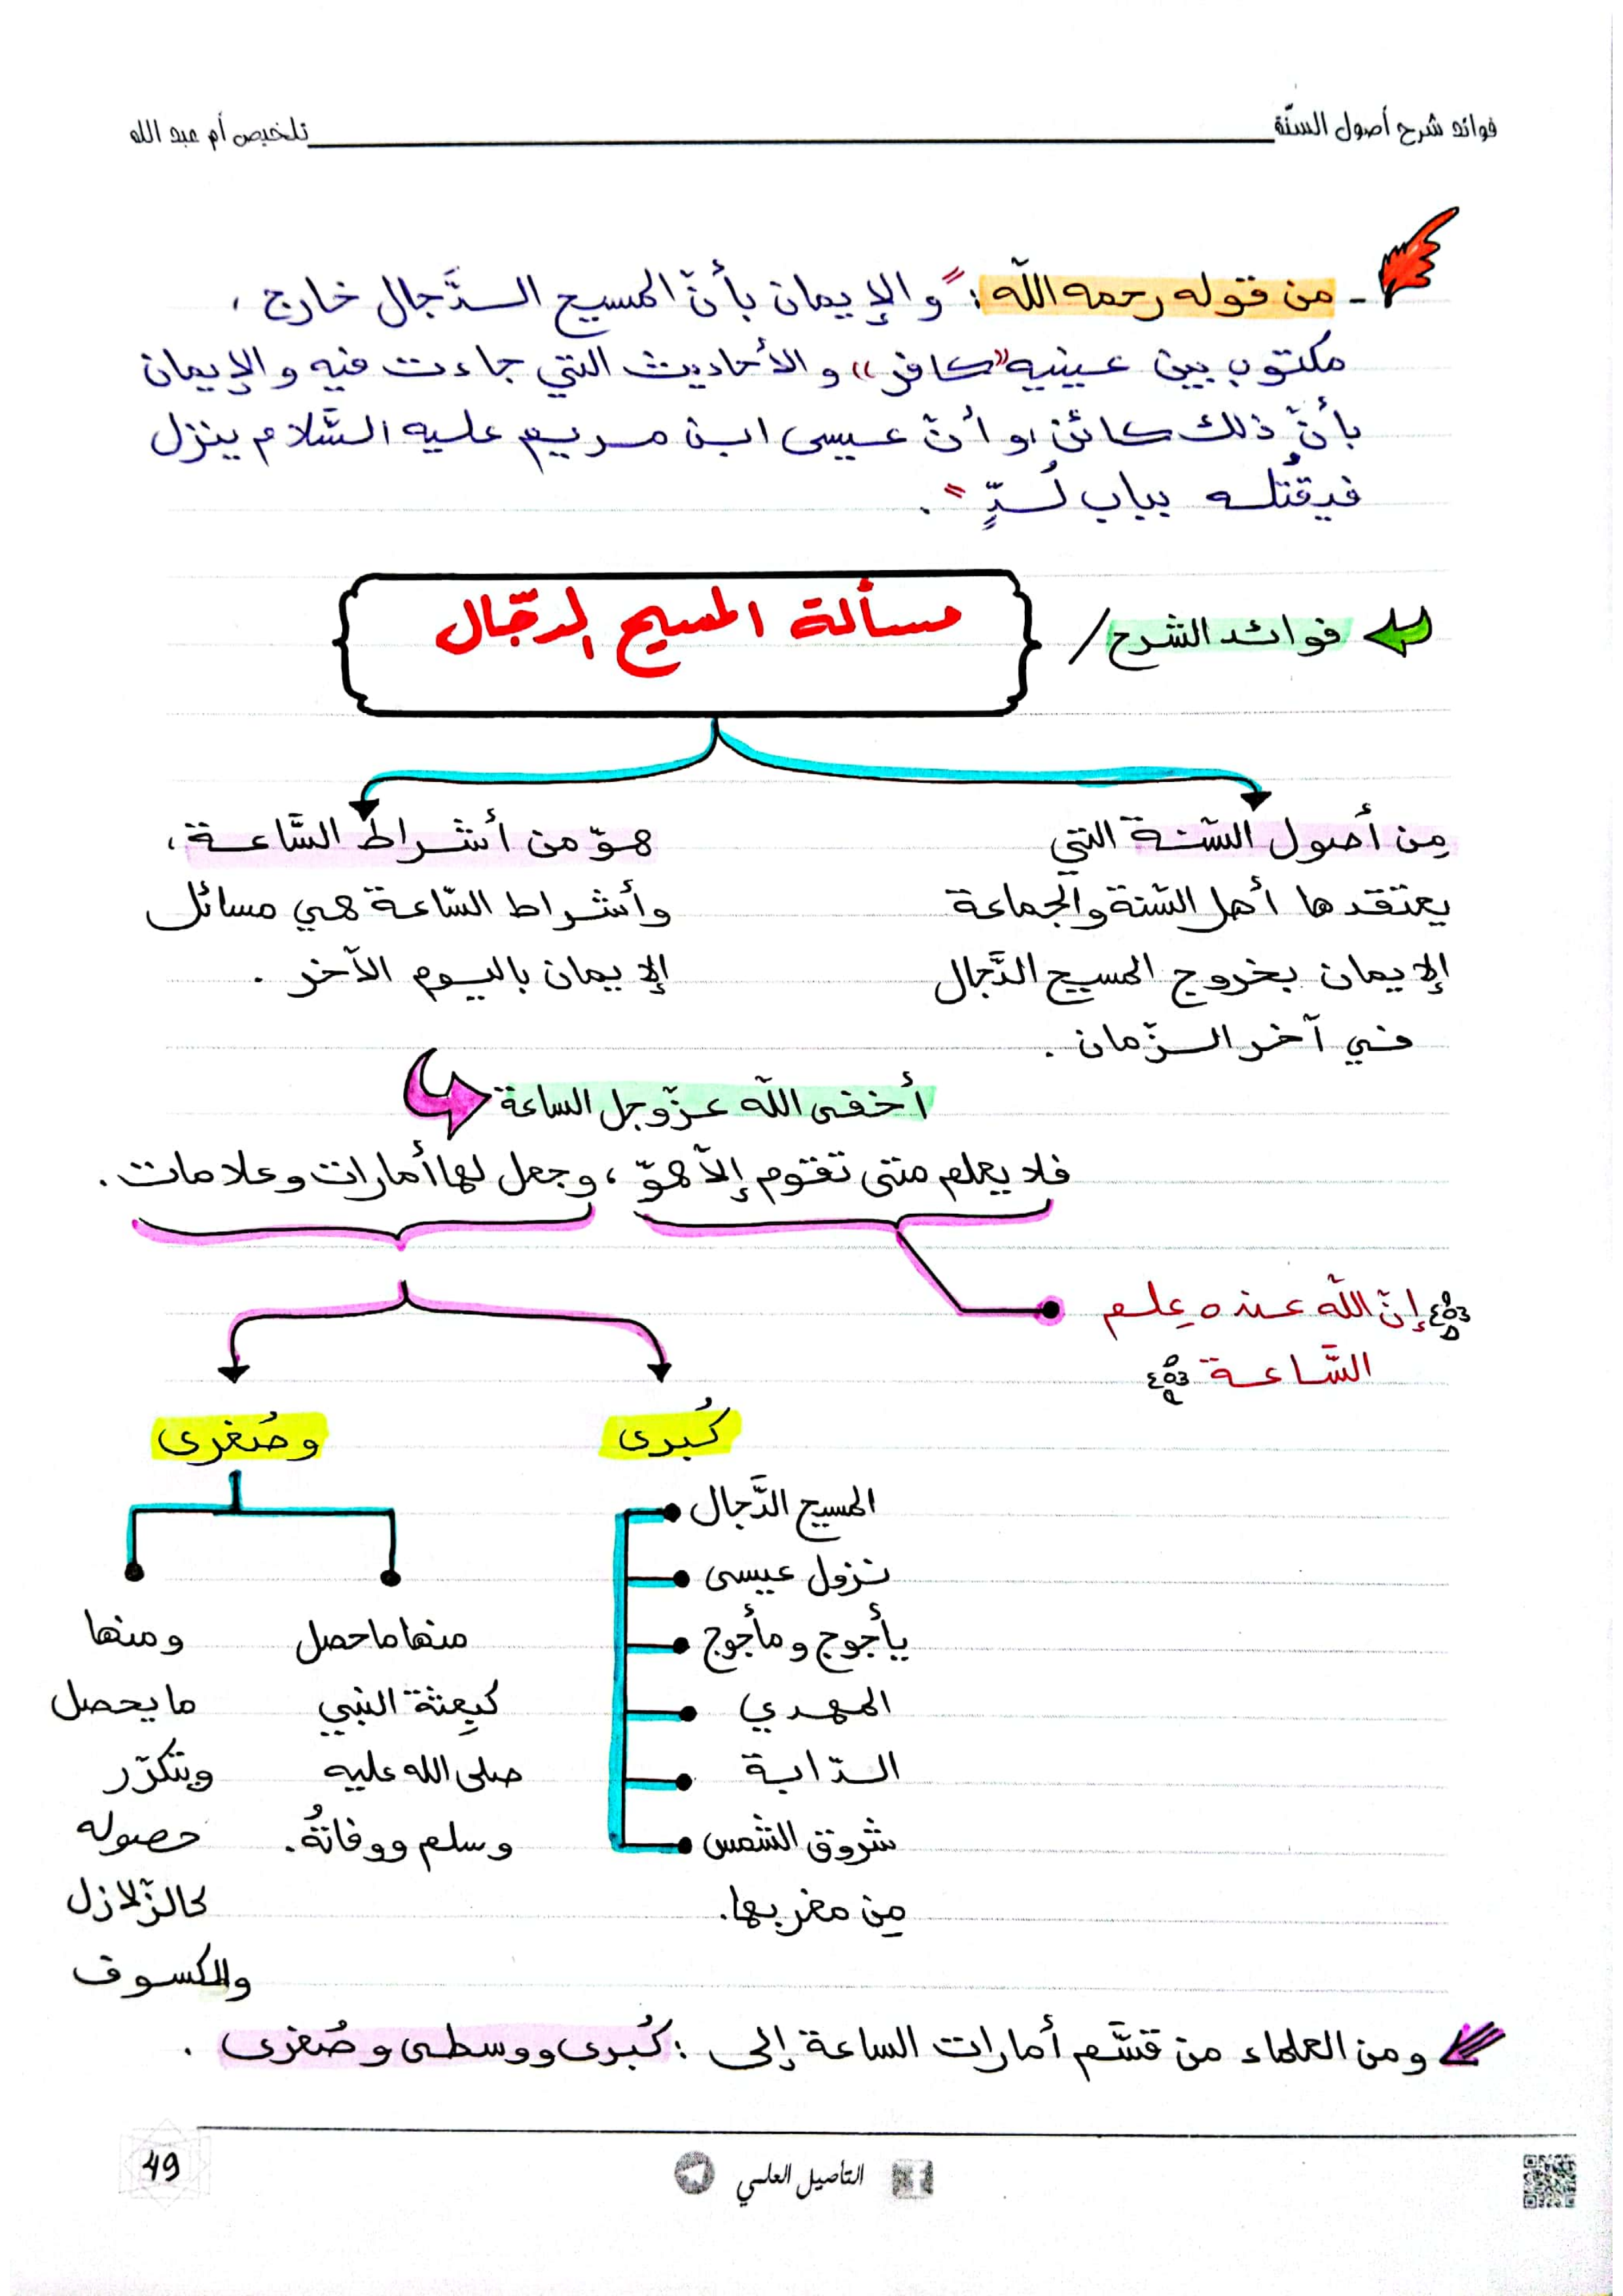 فوائد شرح أصول السنّة
تلخيص أم عبد الله
- من قوله رحمه اللّه : "والإيمان بأنّ المسيح الدَّجال خارج ،
مكتوب بين عينيه "كافر" والأحاديث التي جاءت فيه والإيمان
بأنّ ذلك كائن، وأنّ عيسى ابن مريم عليه السَّلام ينزل
فيقتُله بباب لُدٍّ" .
فوائد الشرح /
مسألة المسيح الدجّال
مِن أصول السّنة التي
يعتقدها أهل السّنة والجماعة
الإيمان بخروج المسيح الدَّجال
في آخر الزّمان .
هوّ من أشراط السَّاعة ،
وأشراط السّاعة هي مسائل
الإيمان باليوم الآخر .
أخفى اللّه عزّوجل الساعة
فلا يعلم متى تقوم إلّا هوّ ، وجعل لها أمارات وعلامات .
إنّ اللّه عنده عِلم
السَّاعة
كُبرى
المسيح الدَّجال
نزول عيسى
يأجوج ومأجوج
المهدي
الدّابة
شروق الشمس
مِن مغربها.
وصُغرى
منها ما حصل
كبِعثة النبي
صلى الله عليه
وسلم ووفاتهُ.
ومنها
ما يحصل
ويتكرّر
حصوله
كالزّلازل
والكسوف
ومن العلماء من قسَّم أمارات الساعة إلى : كُبرى ووسطى وصُغرى .
49
التأصيل العلمي